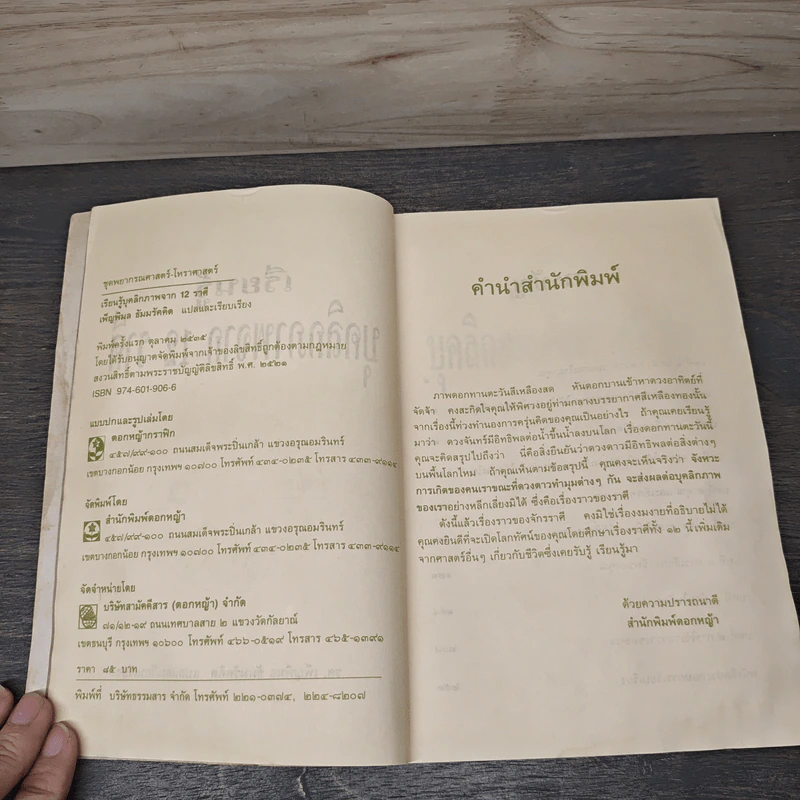 ชุดพยากรณศาสตร์-โหราศาสตร์
เรียนรู้บุคลิกภาพจาก 12 ราศี
เพ็ญพิมล ธัมมรัคคิต แปลและเรียบเรียง
พิมพ์ครั้งแรก ตุลาคม ๒๕๓๕
โดยได้รับอนุญาตจัดพิมพ์จากเจ้าของลิขสิทธิ์ถูกต้องตามกฎหมาย
สงวนสิทธิ์ตามพระราชบัญญัติลิขสิทธิ์ พ.ศ. ๒๕๒๑
ISBN 974-601-906-6
แบบปกและรูปเล่มโดย
ดอกหญ้ากราฟิก
๔๕๗/๙๙-๑๐๐ ถนนสมเด็จพระปิ่นเกล้า แขวงอรุณอมรินทร์
เขตบางกอกน้อย กรุงเทพฯ ๑๐๗๐๐ โทรศัพท์ ๔๓๔-๐๒๓๕ โทรสาร ๔๓๓-๙๑๑๔
จัดพิมพ์โดย
สำนักพิมพ์ดอกหญ้า
๔๕๗/๙๙-๑๐๐ ถนนสมเด็จพระปิ่นเกล้า แขวงอรุณอมรินทร์
เขตบางกอกน้อย กรุงเทพฯ ๑๐๗๐๐ โทรศัพท์ ๔๓๔-๐๒๓๕ โทรสาร ๔๓๓-๙๑๑๔
จัดจำหน่ายโดย
บริษัทสามัคคีสาร (ดอกหญ้า) จำกัด
๗๑/๑๒-๑๙ ถนนเทศบาลสาย ๒ แขวงวัดกัลยาณ์
เขตธนบุรี กรุงเทพฯ ๑๐๖๐๐ โทรศัพท์ ๔๖๖-๐๕๑๙ โทรสาร ๔๖๕-๑๓๙๑
ราคา ๘๕ บาท
พิมพ์ที่ บริษัทธรรมสาร จำกัด โทรศัพท์ ๒๒๑-๐๓๗๔, ๒๒๔-๘๒๐๗
คำนำสำนักพิมพ์
ภาพดอกทานตะวันสีเหลืองสด หันดอกบานเข้าหาดวงอาทิตย์ที่
จัดจ้า คงสะกิดใจคุณให้พิศวงอยู่ท่ามกลางบรรยากาศสีเหลืองทองนั้น
จากเรื่องนี้ท่วงทำนองการครุ่นคิดของคุณเป็นอย่างไร ถ้าคุณเคยเรียนรู้
มาว่า ดวงจันทร์มีอิทธิพลต่อน้ำขึ้นน้ำลงบนโลก เรื่องดอกทานตะวันนี้
คุณจะคิดสรุปไปถึงว่า นี่คือสิ่งยืนยันว่าดวงดาวมีอิทธิพลต่อสิ่งต่างๆ
บนพื้นโลกไหม ถ้าคุณเห็นตามข้อสรุปนี้ คุณคงจะเห็นจริงว่า จังหวะ
การเกิดของคนเราขณะที่ดวงดาวทำมุมต่างๆ กัน จะส่งผลต่อบุคลิกภาพ
ของเราอย่างหลีกเลี่ยงมิได้ ซึ่งคือเรื่องราวของราศี
ดังนี้แล้วเรื่องราวของจักรราศี คงมิใช่เรื่องงมงายที่อธิบายไม่ได้
คุณคงยินดีที่จะเปิดโลกทัศน์ของคุณโดยศึกษาเรื่องราศีทั้ง ๑๒ นี้เพิ่มเติม
จากศาสตร์อื่นๆ เกี่ยวกับชีวิตซึ่งเคยรับรู้ เรียนรู้มา
ด้วยความปรารถนาดี
สำนักพิมพ์ดอกหญ้า